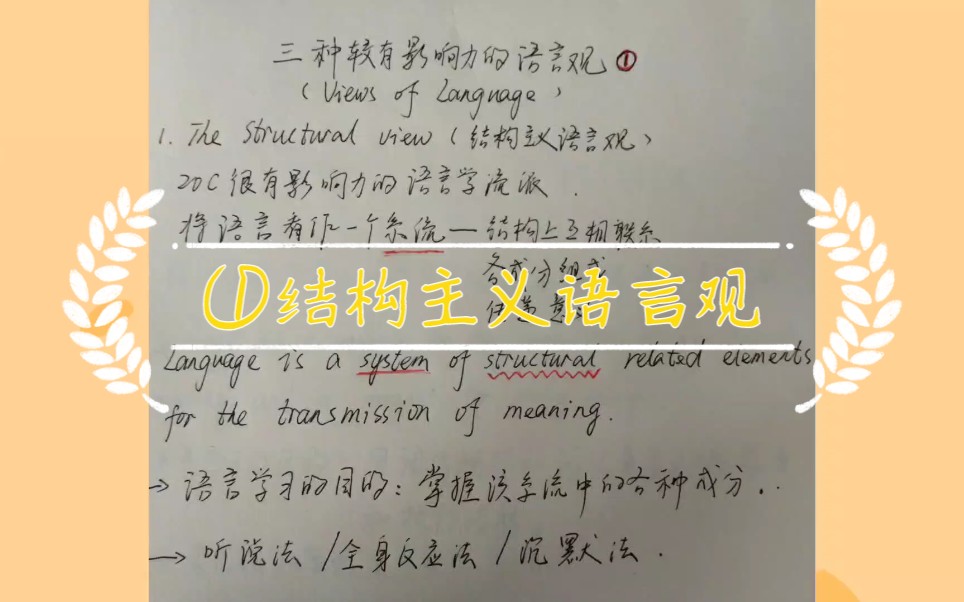 三种较有影响力的语言观①
(Views of Language)
1. The Structural view (结构主义语言观)
20C很有影响力的语言学流派.
将语言看作一个系统—结构上互相联系
各成分组成
①结构主义语言观
Language is a system of structural related elements
for the transmission of meaning.
→语言学习的目的:掌握该系统中的各种成分..
→听说法/全身反应法/沉默法.